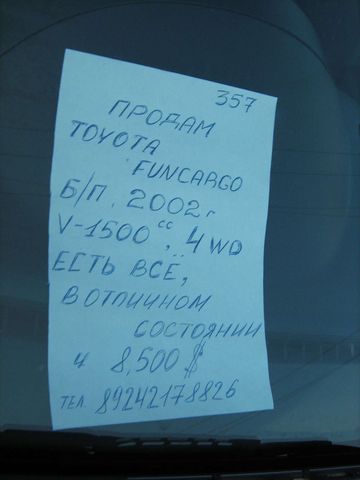 357
ПРОДАМ
TOYOTA
FUNCARGO
Б/П. 2002г
V-1500 cc, 4 WD
ЕСТЬ ВСЁ,
В ОТЛИЧНОМ
СОСТОЯНИИ
Ц 8,500 $
ТЕЛ. 89242178826